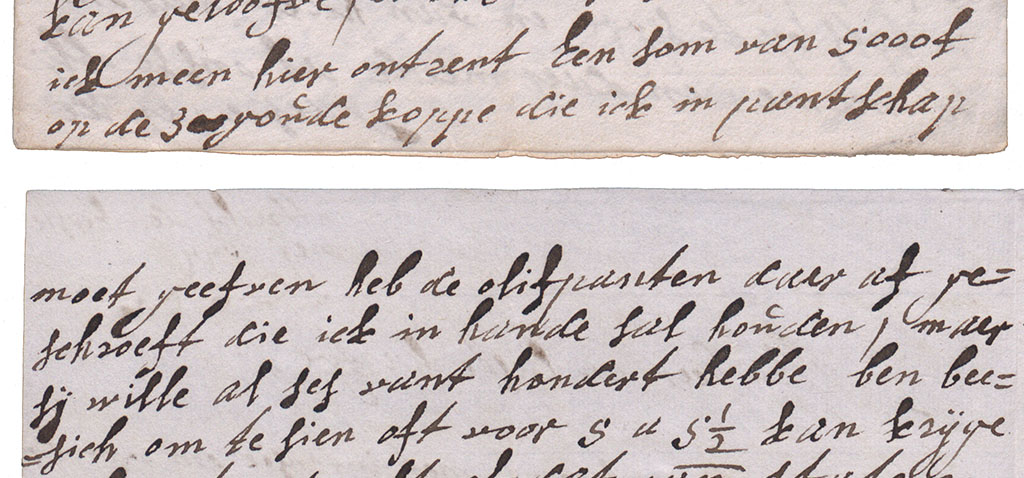 kan geloofve,
ick meen hier ontrent Een som van 5000f
op de 3 goude koppe die ick in pantschap
moet geefven heb de olifpanten daer af ge=
schroeft die ick in hande sal houden, maer
sij wille al ses vant hondert hebbe ben bee=
=sich om te sien oft voor 5 a 5½ kan krijge